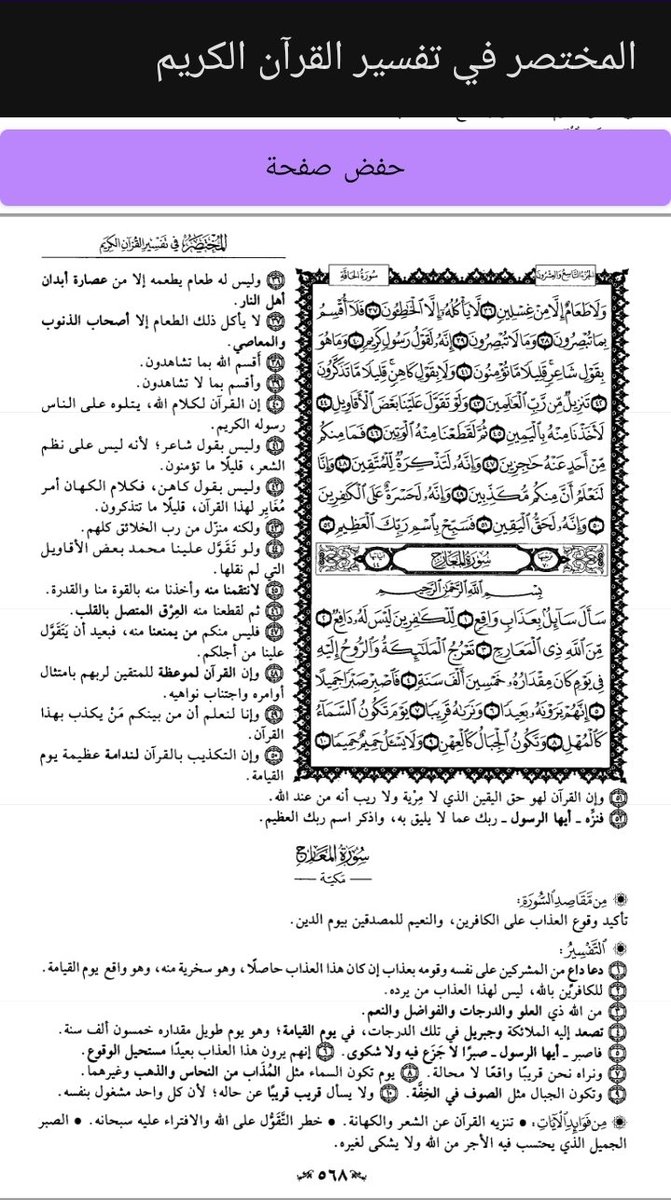 المختصر في تفسير القرآن الكريم
حفض صفحة
المختصر في تفسير القرآن الكريم
الجزء التاسع والعشرون
سورة الحاقة
وَلَا طَعَامٌ إِلَّا مِنْ غِسْلِينٍ ٣٦ لَّا يَأْكُلُهُۥٓ إِلَّا ٱلْخَٰطِـُٔونَ ٣٧ فَلَآ أُقْسِمُ
بِمَا تُبْصِرُونَ ٣٨ وَمَا لَا تُبْصِرُونَ ٣٩ إِنَّهُۥ لَقَوْلُ رَسُولٍ كَرِيمٍ ٤٠ وَمَا هُوَ
بِقَوْلِ شَاعِرٍ قَلِيلًا مَّا تُؤْمِنُونَ ٤١ وَلَا بِقَوْلِ كَاهِنٍ قَلِيلًا مَّا تَذَكَّرُونَ
٤٢ تَنزِيلٌ مِّن رَّبِّ ٱلْعَٰلَمِينَ ٤٣ وَلَوْ تَقَوَّلَ عَلَيْنَا بَعْضَ ٱلْأَقَاوِيلِ ٤٤
لَأَخَذْنَا مِنْهُ بِٱلْيَمِينِ ٤٥ ثُمَّ لَقَطَعْنَا مِنْهُ ٱلْوَتِينَ ٤٦ فَمَا مِنكُم
مِّنْ أَحَدٍ عَنْهُ حَٰجِزِينَ ٤٧ وَإِنَّهُۥ لَتَذْكِرَةٌ لِّلْمُتَّقِينَ ٤٨ وَإِنَّا
لَنَعْلَمُ أَنَّ مِنكُم مُّكَذِّبِينَ ٤٩ وَإِنَّهُۥ لَحَسْرَةٌ عَلَى ٱلْكَٰفِرِينَ
٥٠ وَإِنَّهُۥ لَحَقُّ ٱلْيَقِينِ ٥١ فَسَبِّحْ بِٱسْمِ رَبِّكَ ٱلْعَظِيمِ ٥٢
سورة المعارج
بِسْمِ ٱللَّهِ ٱلرَّحْمَٰنِ ٱلرَّحِيمِ
سَأَلَ سَآئِلٌۢ بِعَذَابٍ وَاقِعٍ ١ لِّلْكَٰفِرِينَ لَيْسَ لَهُۥ دَافِعٌ ٢
مِّنَ ٱللَّهِ ذِى ٱلْمَعَارِجِ ٣ تَعْرُجُ ٱلْمَلَٰٓئِكَةُ وَٱلرُّوحُ إِلَيْهِ
فِى يَوْمٍ كَانَ مِقْدَارُهُۥ خَمْسِينَ أَلْفَ سَنَةٍ ٤ فَٱصْبِرْ صَبْرًا جَمِيلًا
٥ إِنَّهُمْ يَرَوْنَهُۥ بَعِيدًا ٦ وَنَرَىٰهُ قَرِيبًا ٧ يَوْمَ تَكُونُ ٱلسَّمَآءُ
كَٱلْمُهْلِ ٨ وَتَكُونُ ٱلْجِبَالُ كَٱلْعِهْنِ ٩ وَلَا يَسْـَٔلُ حَمِيمٌ حَمِيمًا ١٠
٣٦ وليس له طعام يطعمه إلا من عصارة أبدان
أهل النار.
٣٧ لا يأكل ذلك الطعام إلا أصحاب الذنوب
والمعاصي.
٣٨ أَقسم الله بما تشاهدون.
٣٩ وأقسم بما لا تشاهدون.
٤٠ إن القرآن لكلام الله، يتلوه على الناس
رسوله الكريم.
٤١ وليس بقول شاعر؛ لأنه ليس على نظم
الشعر، قليلًا ما تؤمنون.
٤٢ وليس بقول كاهن، فكلام الكهان أمر
مُغَاير لهذا القرآن، قليلًا ما تتذكرون.
٤٣ ولكنه منزّل من رب الخلائق كلهم.
٤٤ ولو تَقَوَّل علينا محمد بعض الأقاويل
التي لم نقلها.
٤٥ لانتقمنا منه وأخذنا منه بالقوة منا والقدرة.
٤٦ ثم لقطعنا منه العِرْق المتصل بالقلب.
٤٧ فليس منكم من يمنعنا منه، فبعيد أن يَتَقَوَّل
علينا من أجلكم.
٤٨ وإن القرآن لموعظة للمتقين لربهم بامتثال
أوامره واجتناب نواهيه.
٤٩ وإنا لنعلم أن من بينكم مَنْ يكذب بهذا
القرآن.
٥٠ وإن التكذيب بالقرآن لندامة عظيمة يوم
القيامة.
٥١ وإن القرآن لهو حق اليقين الذي لا مِرْية ولا ريب أنه من عند الله.
٥٢ فنزِّه ـ أيها الرسول ـ ربك عما لا يليق به، واذكر اسم ربك العظيم.
سورة المعارج
مكية
من مقاصد السورة:
تأكيد وقوع العذاب على الكافرين، والنعيم للمصدقين بيوم الدين.
التفسير:
١ دعا داعٍ من المشركين على نفسه وقومه بعذاب إن كان هذا العذاب حاصلًا، وهو سخرية منه، وهو واقع يوم القيامة.
٢ للكافرين بالله، ليس لهذا العذاب من يرده.
٣ من الله ذي العلو والدرجات والفواضل والنعم.
٤ تصعد إليه الملائكة وجبريل في تلك الدرجات، في يوم القيامة؛ وهو يوم طويل مقداره خمسون ألف سنة.
٥ فاصبر ـ أيها الرسول ـ صبرًا لا جَزَع فيه ولا شكوى. ٦ إنهم يرون هذا العذاب بعيدًا مستحيل الوقوع.
٧ ونراه نحن قريبًا واقعًا لا محالة. ٨ يوم تكون السماء مثل المُذَاب من النحاس والذهب وغيرهما.
٩ وتكون الجبال مثل الصوف في الخِفَّة. ١٠ ولا يسأل قريب قريبًا عن حاله؛ لأن كل واحد مشغول بنفسه.
من فوائد الآيات: • تنزيه القرآن عن الشعر والكهانة. • خطر التَّقَوُّل على الله والافتراء عليه سبحانه. • الصبر
الجميل الذي يحتسب فيه الأجر من الله ولا يشكى لغيره.
٥٦٨